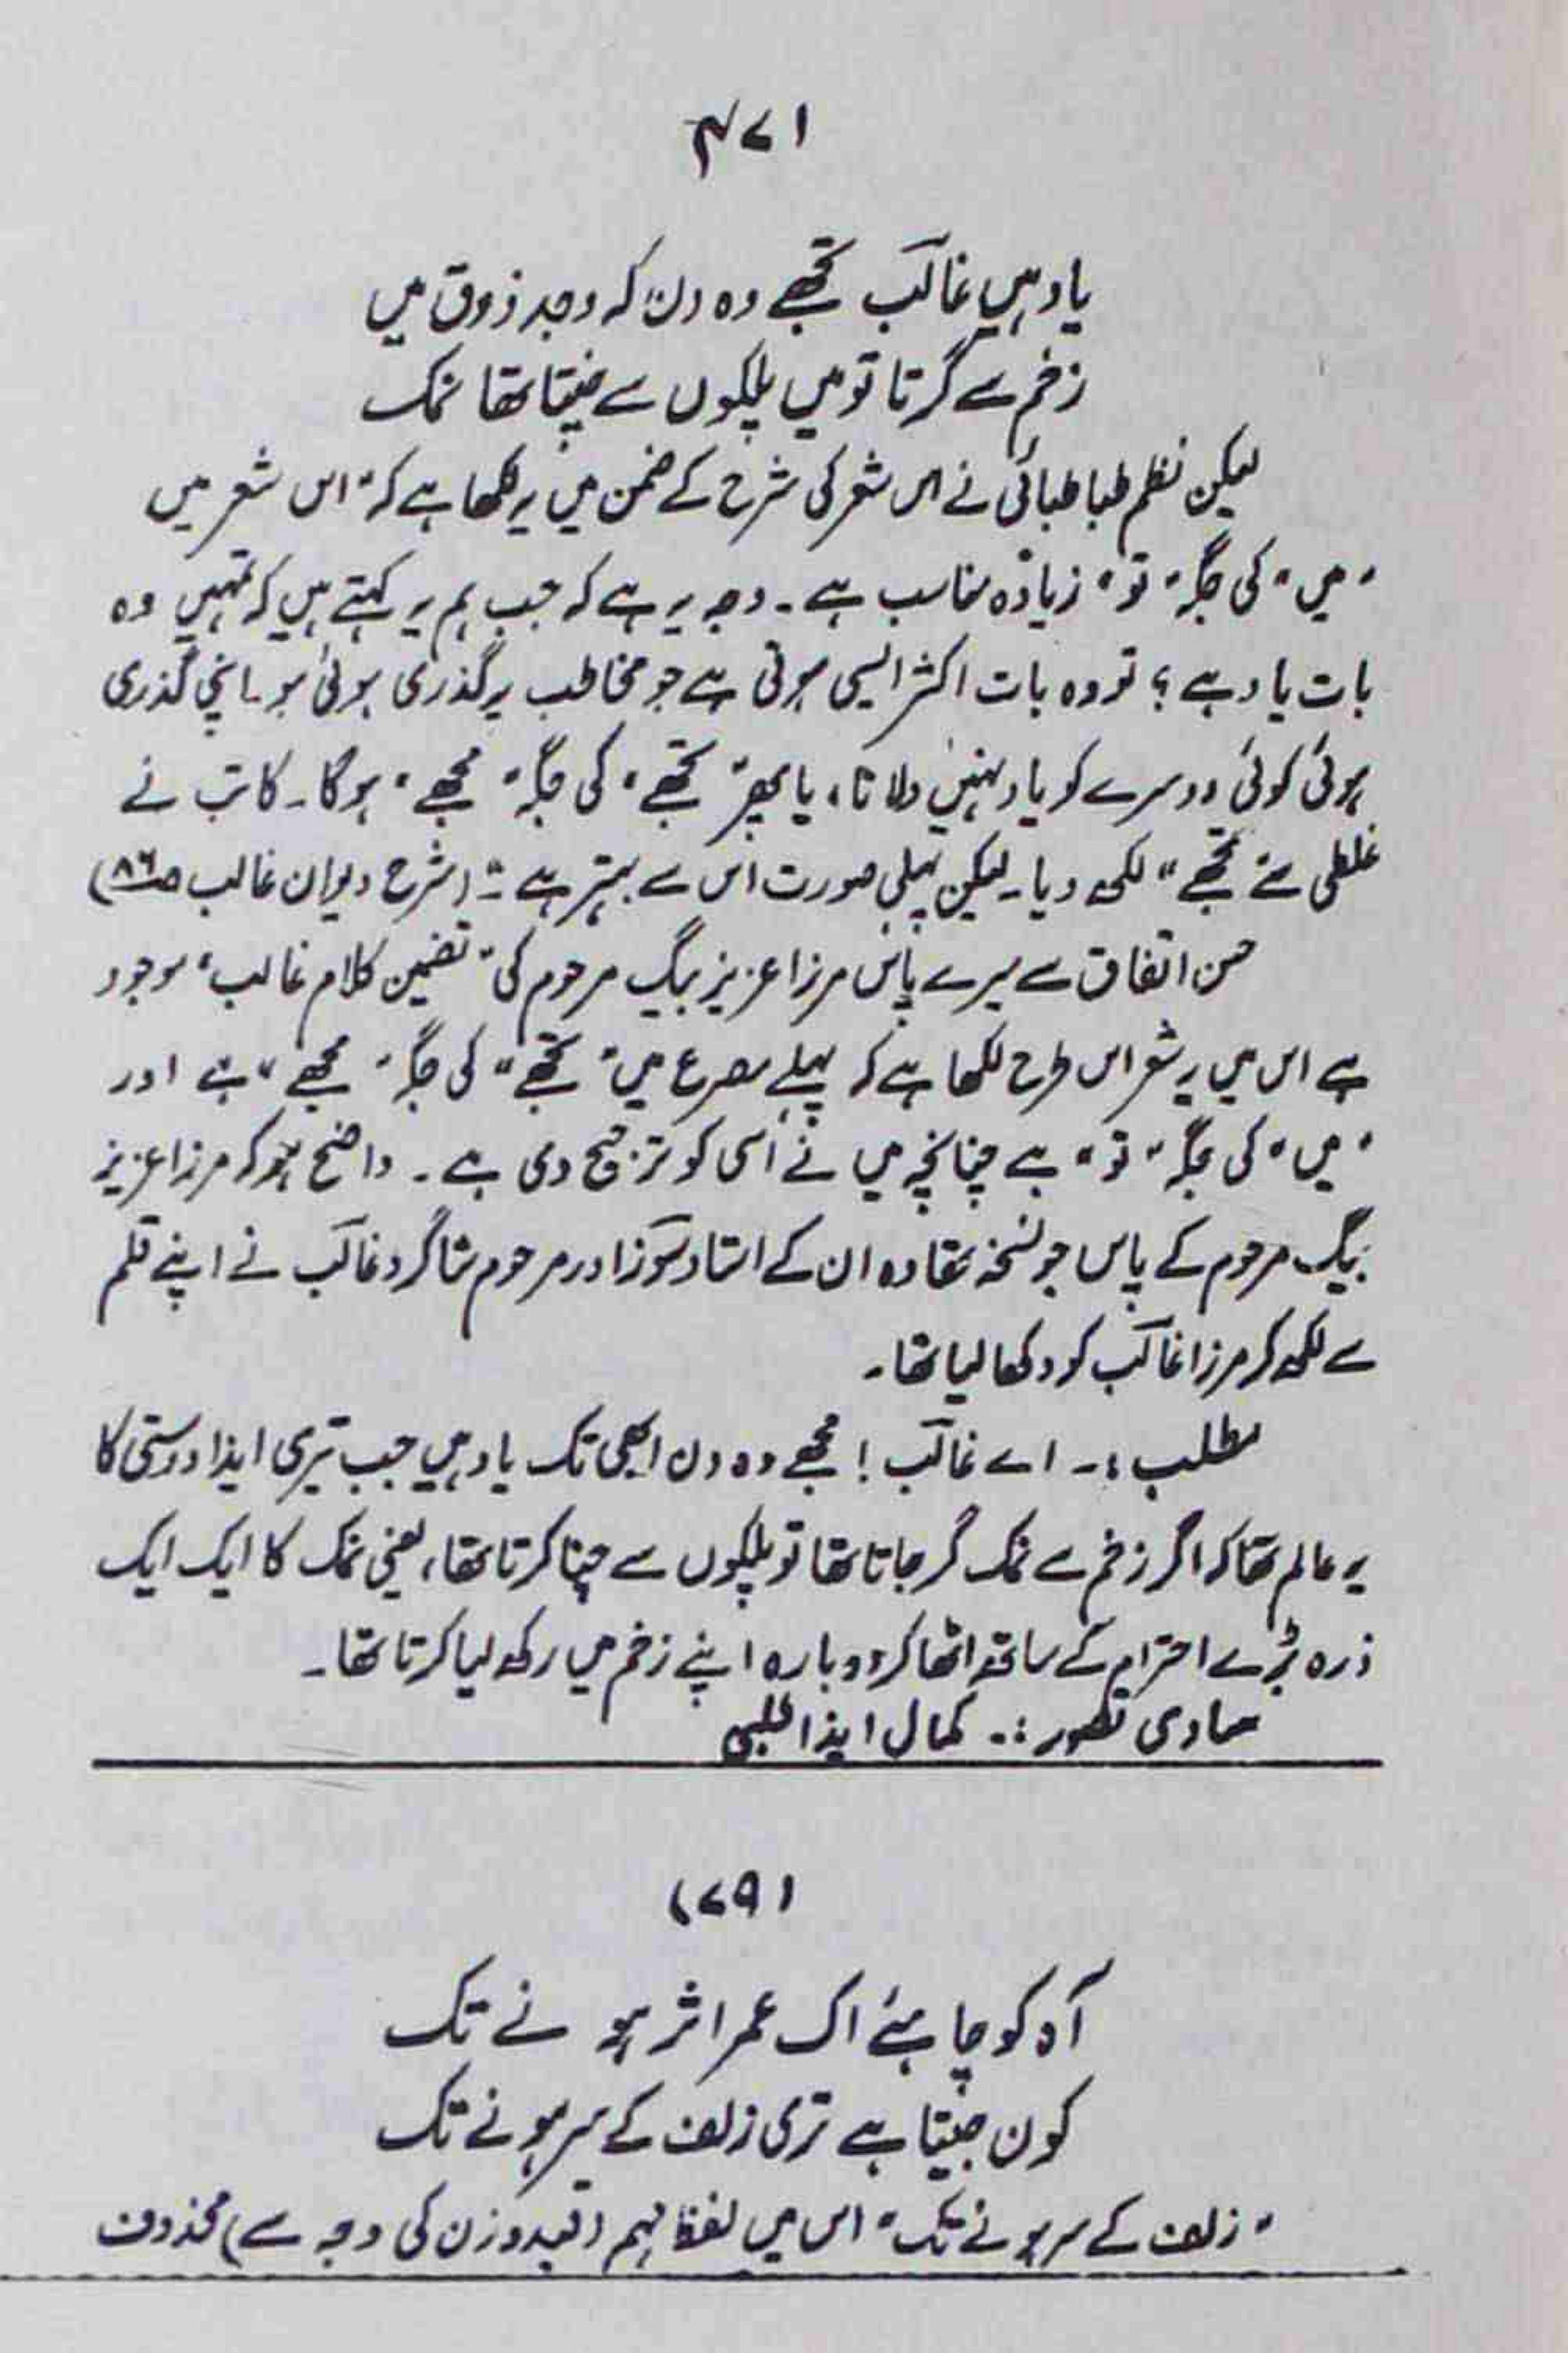 ۴۷۱
یاد ہیں غالبؔ تجھے وہ دن کہ وجدِ ذوق میں
زخم سے گرتا تو میں پلکوں سے چنتا تھا نمک
لیکن نظم طباطبائی نے اس شعر کی شرح کے ضمن میں یہ لکھا ہے کہ "اس شعر میں
"میں" کی جگہ "تو" زیادہ مناسب ہے۔ وجہ یہ ہے کہ جب ہم یہ کہتے ہیں کہ تمہیں وہ
بات یاد ہے؟ تو وہ بات اکثر ایسی ہوتی ہے جو مخاطب پر گذری ہوئی ہو۔ اپنی گذری
ہوئی کوئی دوسرے کو یاد نہیں دلاتا، یا پھر "تجھے" کی جگہ "مجھے" ہوگا۔ کاتب نے
غلطی سے "تجھے" لکھ دیا۔ لیکن پہلی صورت اس سے بہتر ہے۔" (شرح دیوان غالب ص۸۶)
حسن اتفاق سے میرے پاس مرزا عزیز بیگ مرحوم کی "تضمین کلام غالب" موجود
ہے اس میں یہ شعر اس طرح لکھا ہے کہ پہلے مصرع میں "تجھے" کی جگہ "مجھے" ہے اور
"میں" کی جگہ "تو" ہے چنانچہ میں نے اسی کو ترجیح دی ہے۔ واضح ہو کہ مرزا عزیز
بیگ مرحوم کے پاس جو نسخہ تھا وہ ان کے استاد سوزؔ اور مرحوم شاگرد غالبؔ نے اپنے قلم
سے لکھ کر مرزا غالبؔ کو دکھا لیا تھا۔
مطلب:۔ اے غالبؔ! مجھے وہ دن ابھی تک یاد ہیں جب تیری ایذا دوستی کا
یہ عالم تھا کہ اگر زخم سے نمک گر جاتا تھا تو پلکوں سے چنا کرتا تھا، یعنی نمک کا ایک ایک
ذرہ بڑے احترام کے ساتھ اٹھا کر دوبارہ اپنے زخم میں رکھ لیا کرتا تھا۔
بنیادی تصور:۔ کمال ایذا طلبی
(۷۹)
آہ کو چاہئے اک عمر اثر ہو نے تک
کون جیتا ہے تری زلف کے سر ہونے تک
"زلف کے سر ہونے تک" اس میں لفظ مہم (قید وزن کی وجہ سے) محذوف